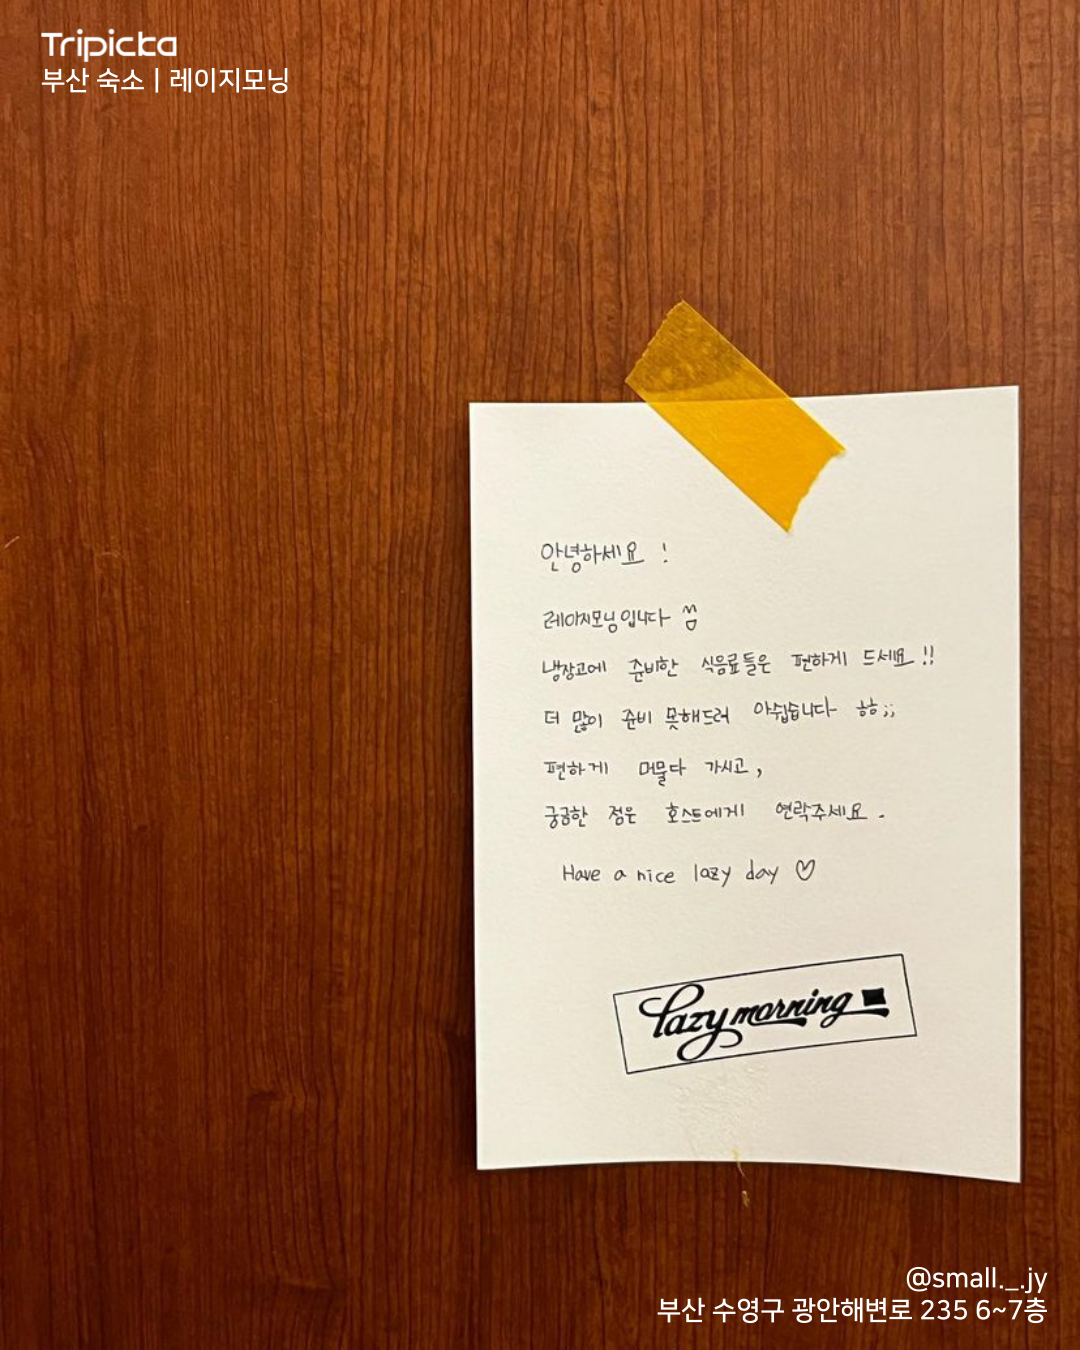 Tripicka
부산 숙소 | 레이지모닝
안녕하세요 !
레이지모닝입니다
냉장고에 준비한 식음료들은 편하게 드세요 !!
더 많이 준비 못해드려 아쉽습니다 ㅎㅎ;;
편하게 머물다 가시고,
궁금한 점은 호스트에게 연락주세요.
Have a nice lazy day ♡
lazy morning
@small._.jy
부산 수영구 광안해변로 235 6~7층